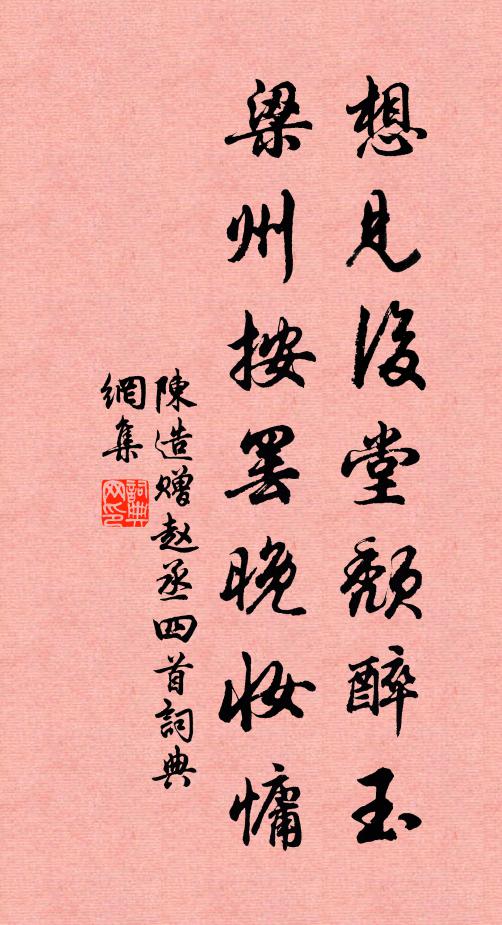 想見後堂頹醉玉
梁州按罷晚妝慵
陳造贈趙丞四首詞典
網集
詞典網印